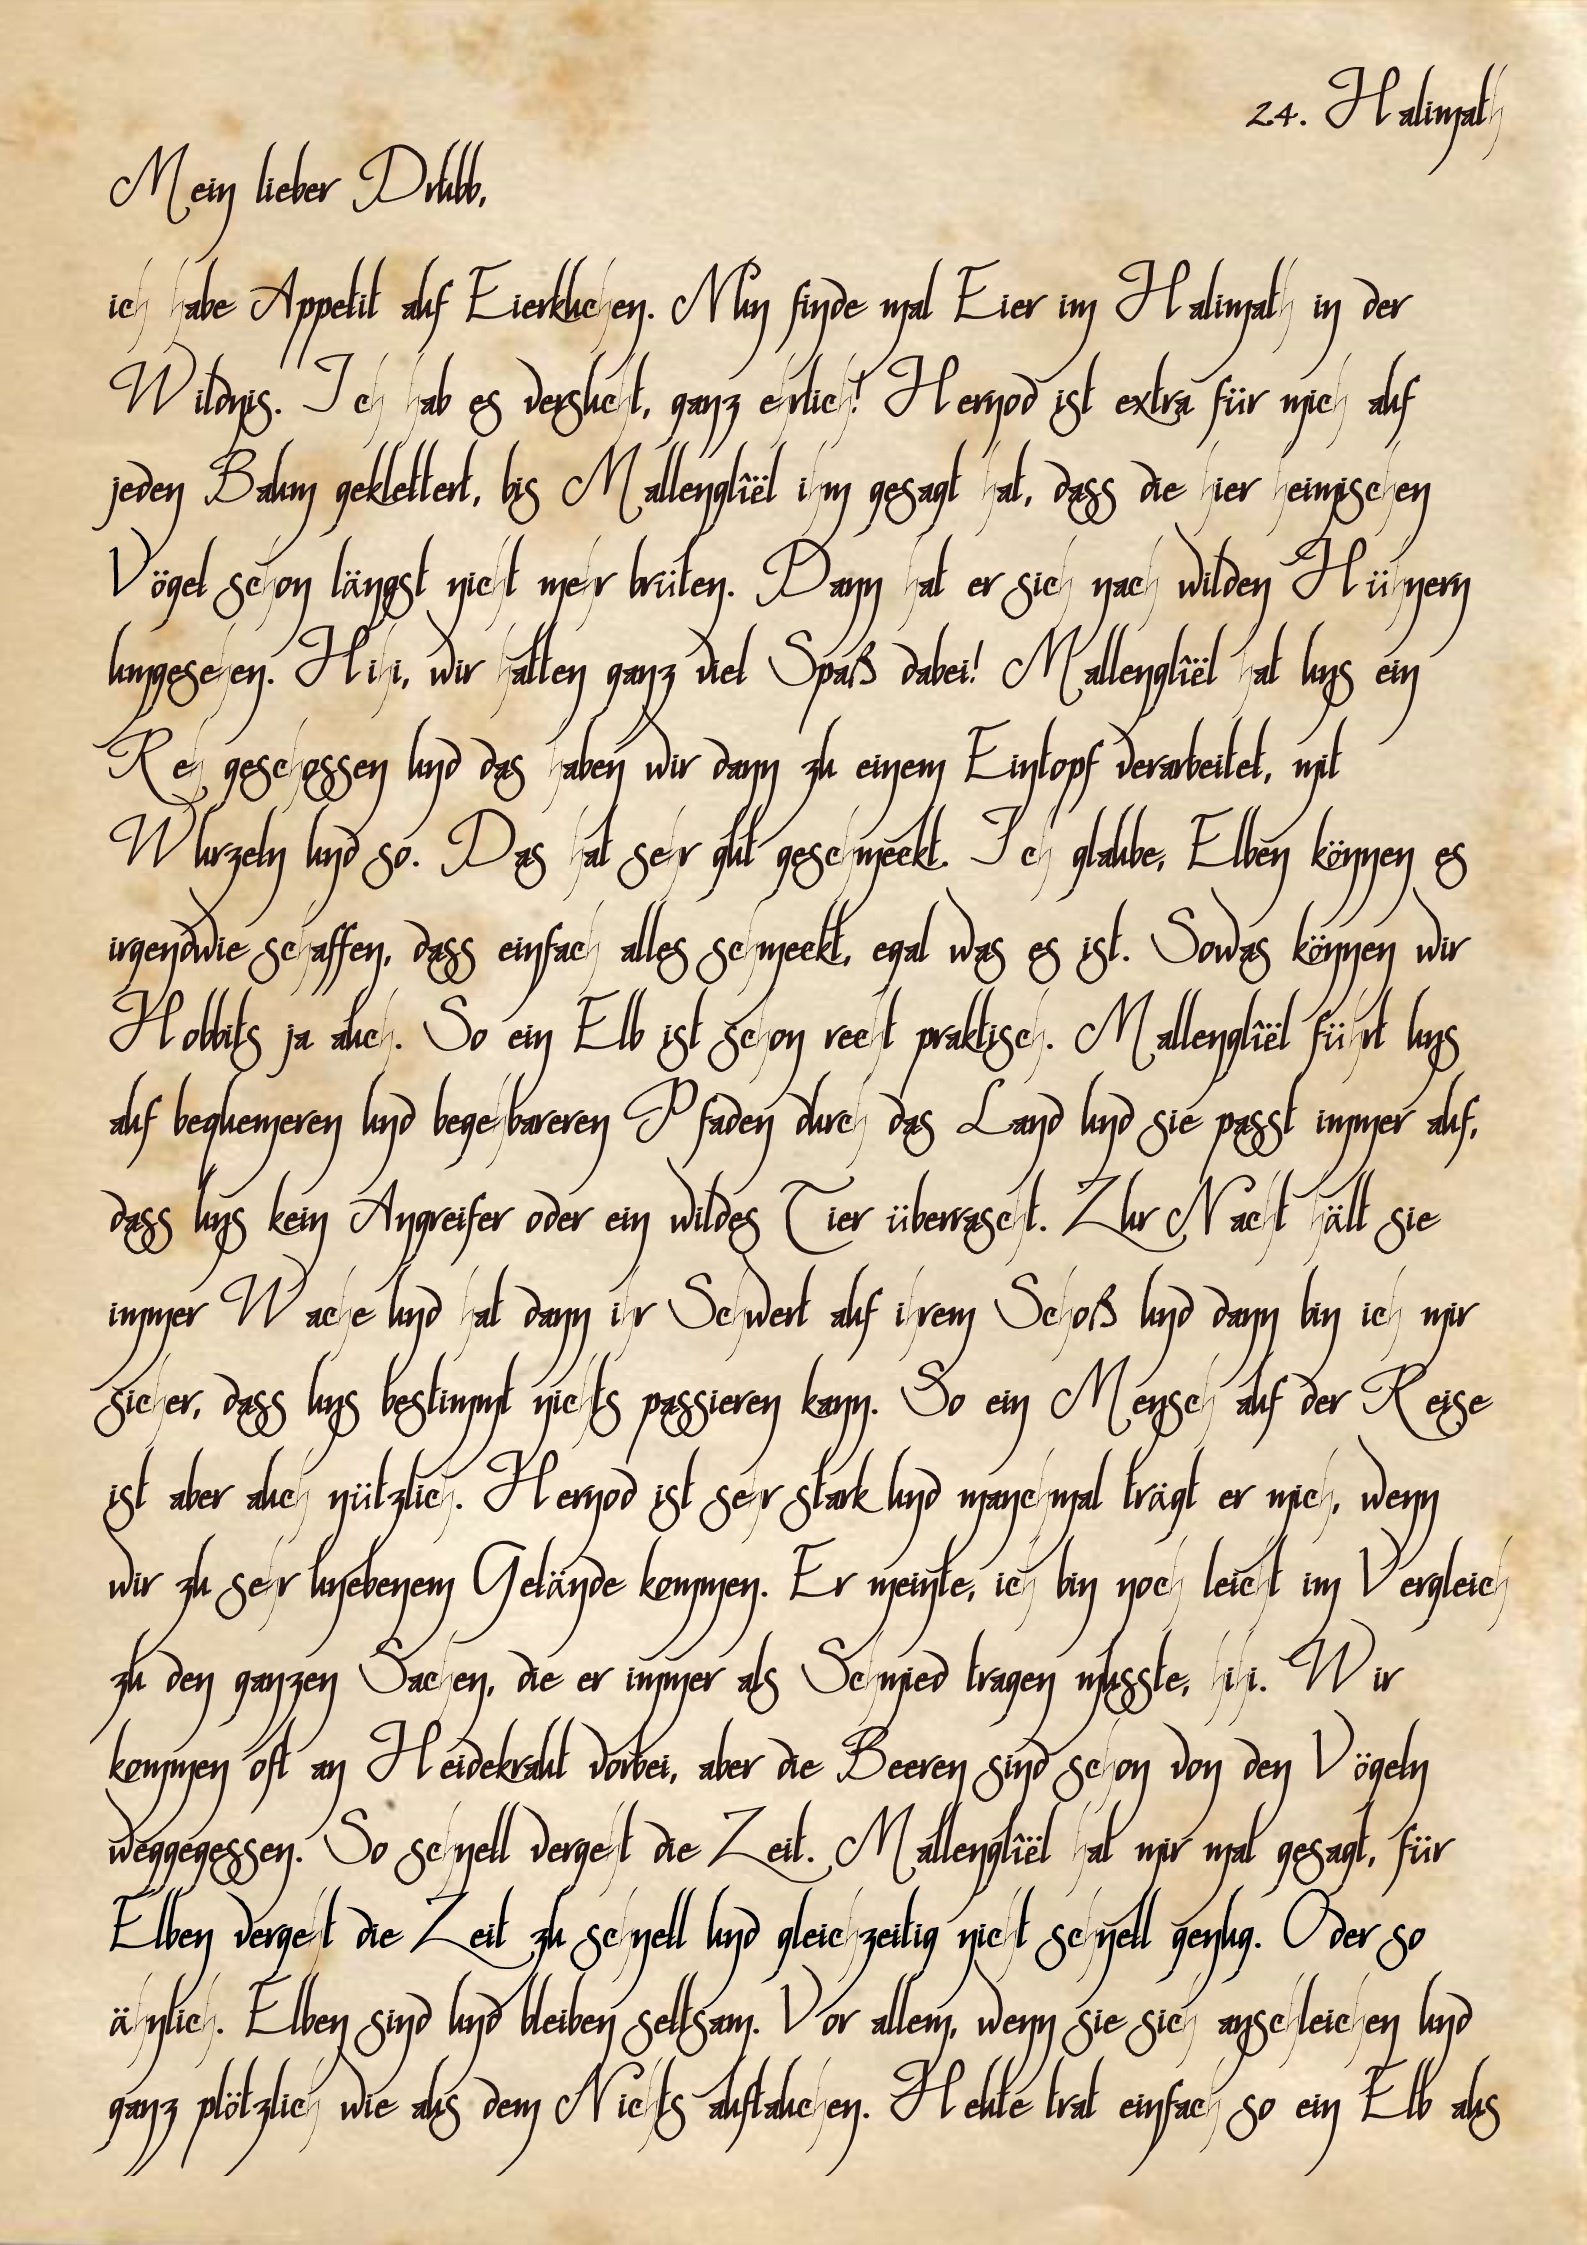 24. Halimath
Mein lieber Drubb,
ich habe Appetit auf Eierkuchen. Nun finde mal Eier im Halimath in der
Wildnis. Ich hab es versucht, ganz ehrlich! Hernod ist extra für mich auf
jeden Baum geklettert, bis Mallenglîël ihm gesagt hat, dass die hier heimischen
Vögel schon längst nicht mehr brüten. Dann hat er sich nach wilden Hühnern
umgesehen. Hihi, wir hatten ganz viel Spaß dabei! Mallenglîël hat uns ein
Reh geschossen und das haben wir dann zu einem Eintopf verarbeitet, mit
Wurzeln und so. Das hat sehr gut geschmeckt. Ich glaube, Elben können es
irgendwie schaffen, dass einfach alles schmeckt, egal was es ist. Sowas können wir
Hobbits ja auch. So ein Elb ist schon recht praktisch. Mallenglîël führt uns
auf bequemeren und begehbareren Pfaden durch das Land und sie passt immer auf,
dass uns kein Angreifer oder ein wildes Tier überrascht. Zur Nacht hält sie
immer Wache und hat dann ihr Schwert auf ihrem Schoß und dann bin ich mir
sicher, dass uns bestimmt nichts passieren kann. So ein Mensch auf der Reise
ist aber auch nützlich. Hernod ist sehr stark und manchmal trägt er mich, wenn
wir zu sehr unebenem Gelände kommen. Er meinte, ich bin noch leicht im Vergleich
zu den ganzen Sachen, die er immer als Schmied tragen musste, hihi. Wir
kommen oft an Heidekraut vorbei, aber die Beeren sind schon von den Vögeln
weggegessen. So schnell vergeht die Zeit. Mallenglîël hat mir mal gesagt, für
Elben vergeht die Zeit zu schnell und gleichzeitig nicht schnell genug. Oder so
ähnlich. Elben sind und bleiben seltsam. Vor allem, wenn sie sich anschleichen und
ganz plötzlich wie aus dem Nichts auftauchen. Heute trat einfach so ein Elb aus